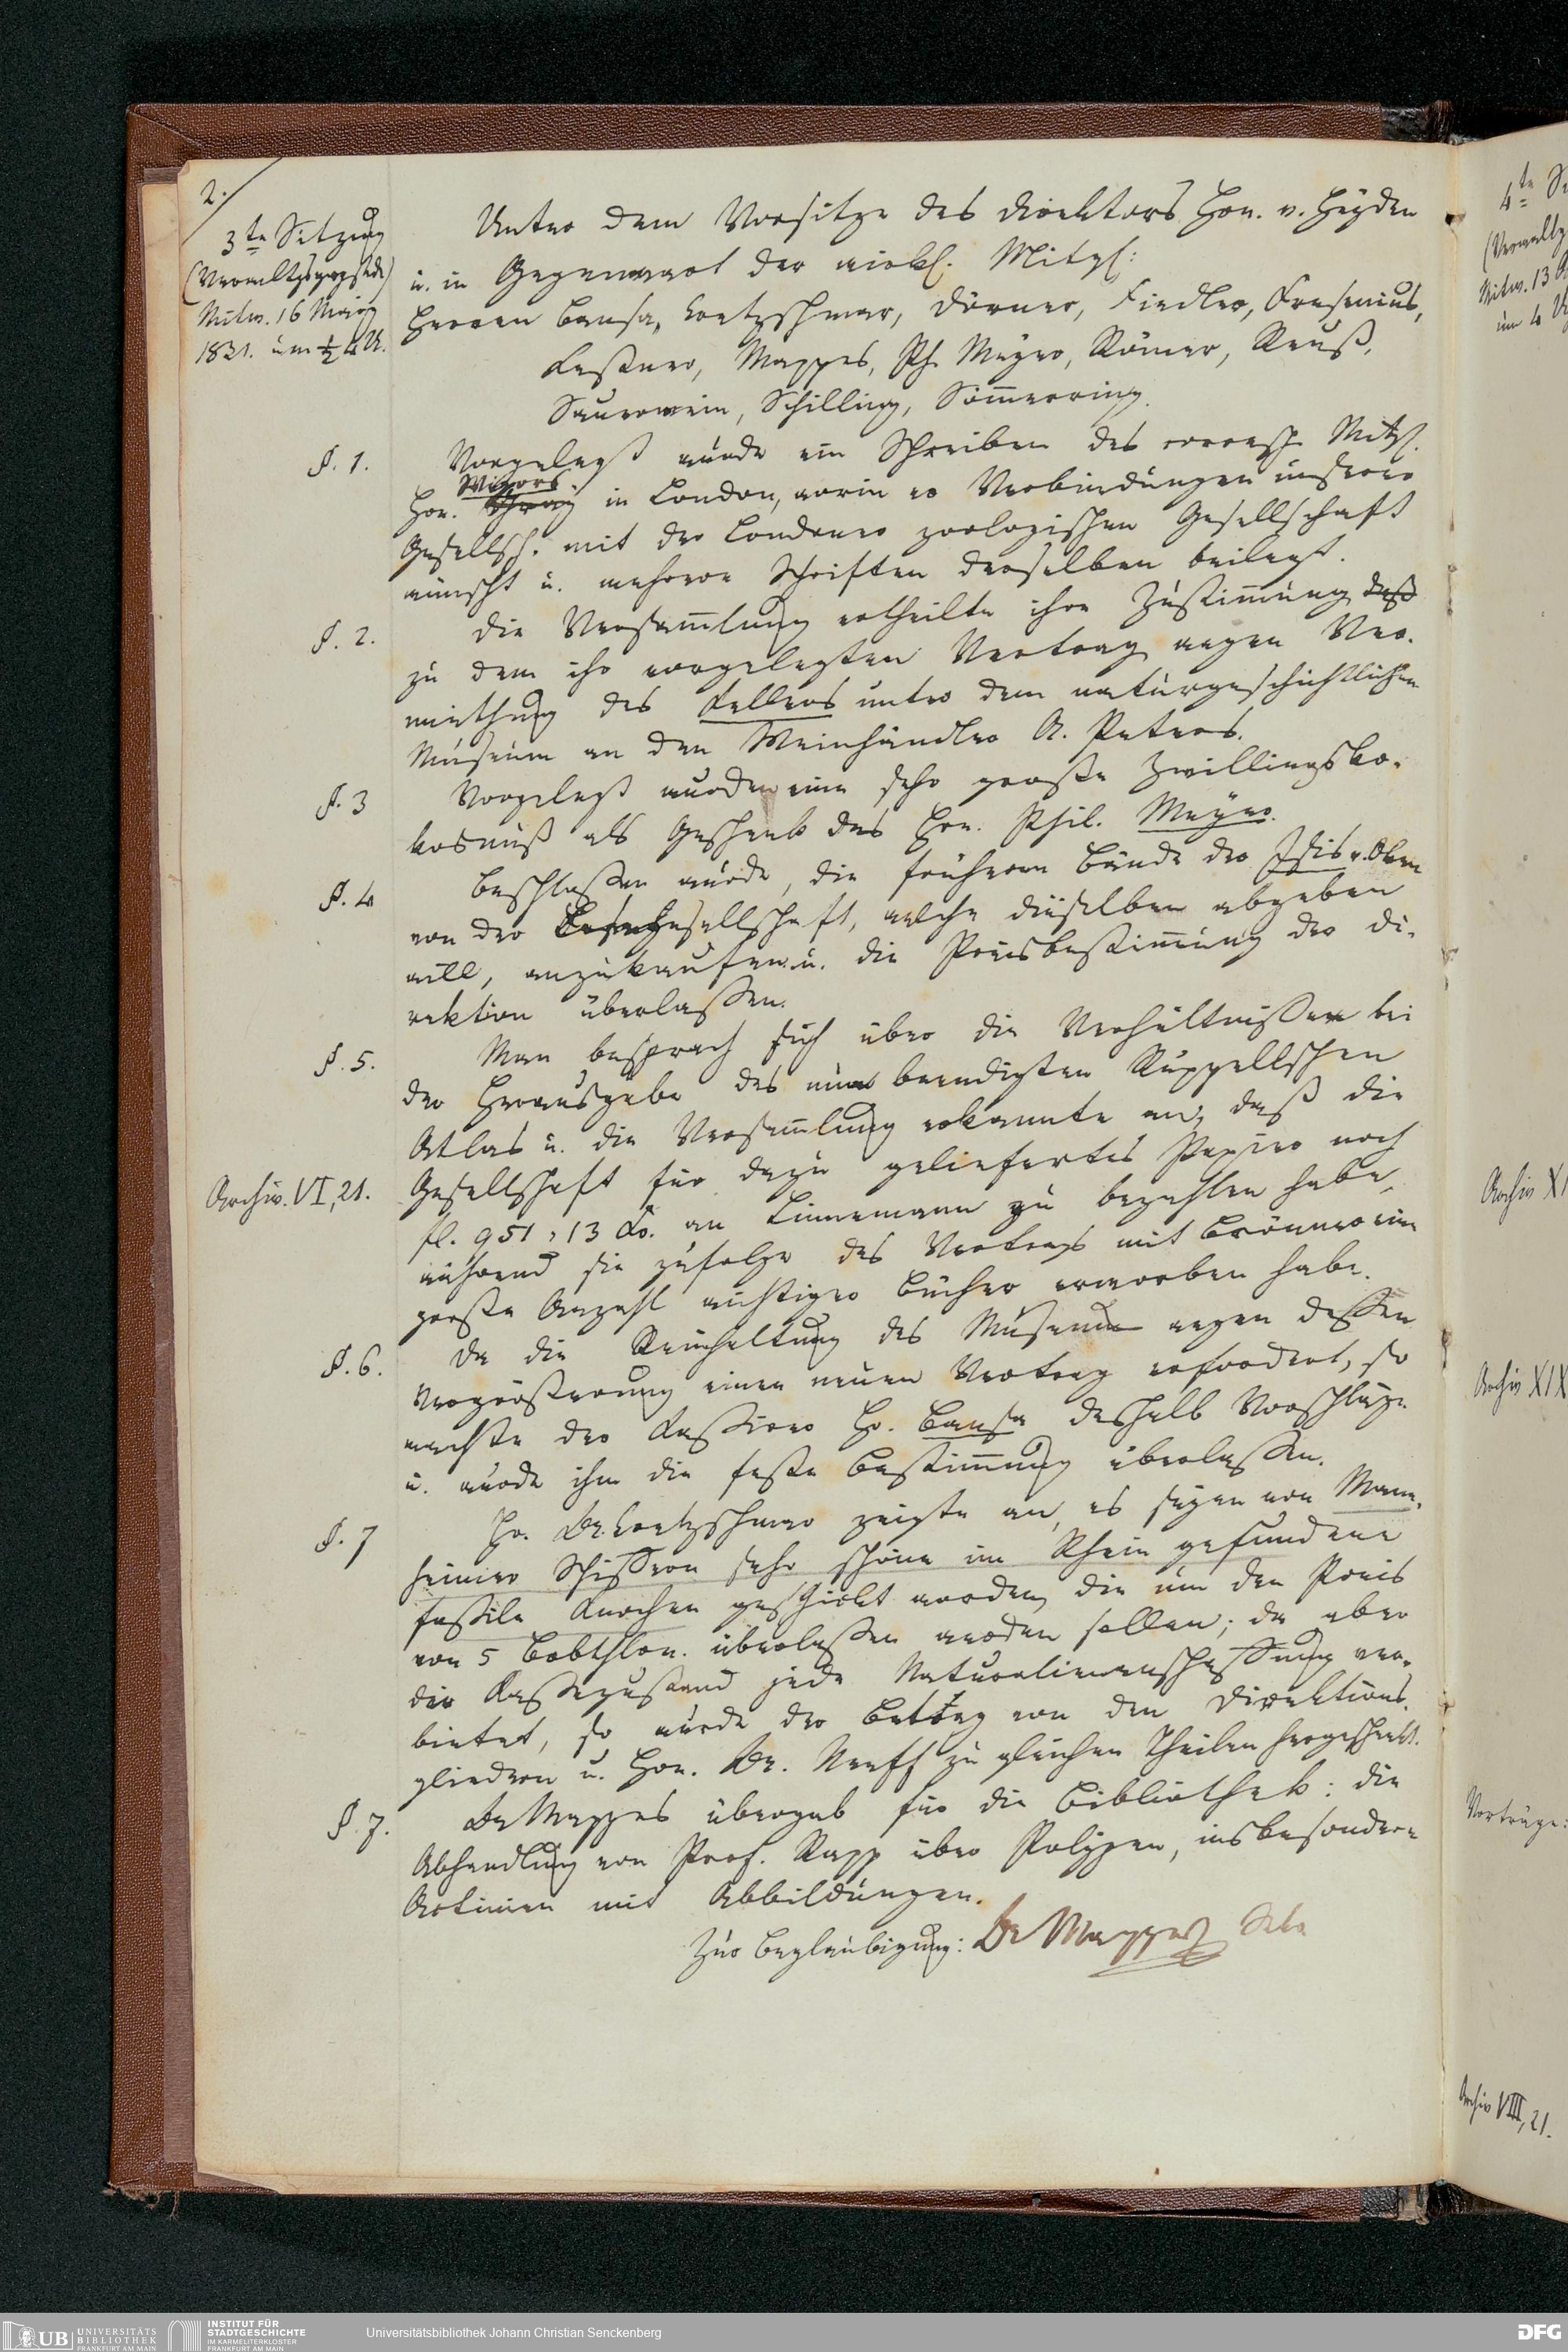 2.
3te Sitzung
(Verwaltgsgegstde)
Mitw. 16 März
1831. um ½ 4 U.
Unter dem Vorsitze des Direktors Hrn. v. Heyden
u. in Gegenwart der wirkl. Mitgl:
Herren Bansa, Cretzschmar, Dörner, Fiedler, Fresenius,
Kessner, Mappes, Ph. Meyer, Römer, Reuß,
Sauerwein, Schilling, Sömmerring.
§. 1.
Vorgelegt wurde ein Schreiben des corresp. Mitgl.
Vigors
Hrn. in London, worin er Verbindungen unserer
Gesellsch. mit der Londoner zoologischen Gesellschaft
wünscht u. mehrere Schriften derselben beilegt.
§. 2.
Die Versammlung ertheilte ihre Zustimmung daß
zu dem ihr vorgelegten Vertrag wegen Ver-
miethung des Kellers unter dem naturgeschichtlichen
Museum an den Weinhändler A. Peters.
§. 3
Vorgelegt wurden eine sehr große Zwillingsko-
kosnuß als Geschenk des Hrn. Phil. Meyer.
§. 4
Beschlossen wurde, die früheren Bände der Isis v. Oken
von der Lesegesellschaft, welche dieselben abgeben
will, anzukaufen u. die Preisbestimmung der Di-
rektion überlassen.
§. 5.
Man besprach sich über die Verhältnisse bei
der Herausgabe des nun beendigten Rüppellschen
Atlas u. die Versammlung erkannte an, daß die
Archiv. VI, 21.
Gesellschaft für dazu geliefertes Papier noch
fl. 951, 13 Kr. an Linnemann zu bezahlen habe,
während sie zufolge des Vertrags mit Brönner eine
große Anzahl wichtiger Bücher erworben habe.
§. 6.
Da die Reinhaltung des Museums wegen dessen
Vergrößerung einen neuen Vertrag erfordert, so
machte der Kassirer Hr. Bansa deshalb Vorschläge
u. wurde ihm die feste Bestimmung überlassen.
§. 7
Hr. Dr. Cretzschmar zeigte an, es seyen von Mann-
heimer Schiffern sehr schöne im Rhein gefundene
fossile Knochen geschickt worden, die um den Preis
von 5 Brbthlrn. überlassen werden sollen; da aber
der Kassezustand jede Naturalienanschaffung ver-
bietet, so wurde der Betrag von den Direktions-
gliedern u. Hrn. Dr. Neeff zu gleichen Theilen hergeschenkt.
§. 7.
Dr Mappes übergab für die Bibliothek: die
Abhandlung von Prof. Rapp über Polypen, insbesondere
Actinien mit Abbildungen.
Zur Beglaubigung: Dr Mappes Sekr
4te
Mitw. 13
um 4
Archiv XI
Archiv XIX
Vorträge:
Archiv VIII, 21.
UB UNIVERSITÄTS
BIBLIOTHEK
FRANKFURT AM MAIN
INSTITUT FÜR
STADTGESCHICHTE
IM KARMELITERKLOSTER
FRANKFURT AM MAIN
Universitätsbibliothek Johann Christian Senckenberg
DFG